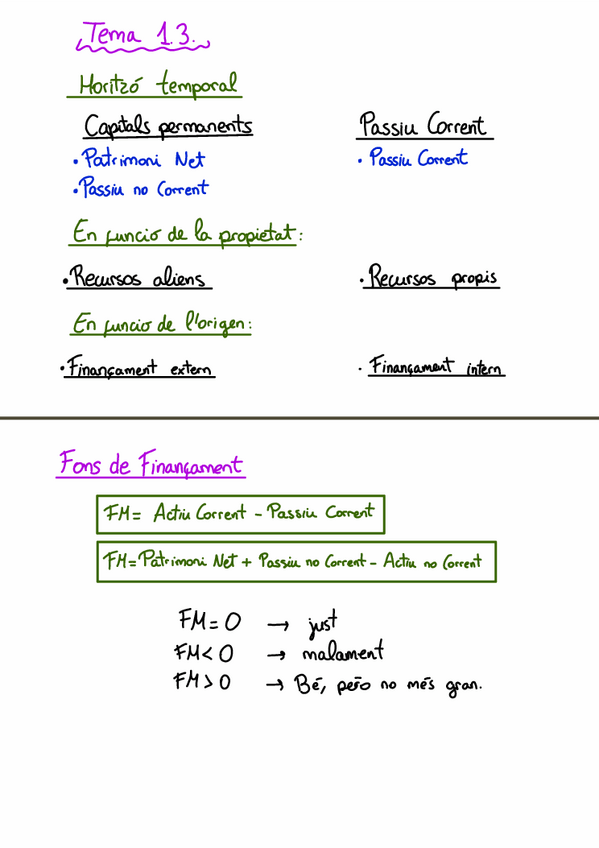 Tema 1.3.
Horitzó temporal
Capitals permanents
• Patrimoni Net
• Passiu no Corrent
Passiu Corrent
• Passiu Corrent
En funcio de la propietat:
• Recursos aliens
• Recursos propis
En funcio de l'origen:
• Finançament extern
• Finançament intern
Fons de Finançament
FM= Actiu Corrent - Passiu Corrent
FM= Patrimoni Net + Passiu no Corrent - Actiu no Corrent
FM= 0 → just
FM< 0 → malament
FM> 0 → Bé, però no més gran.